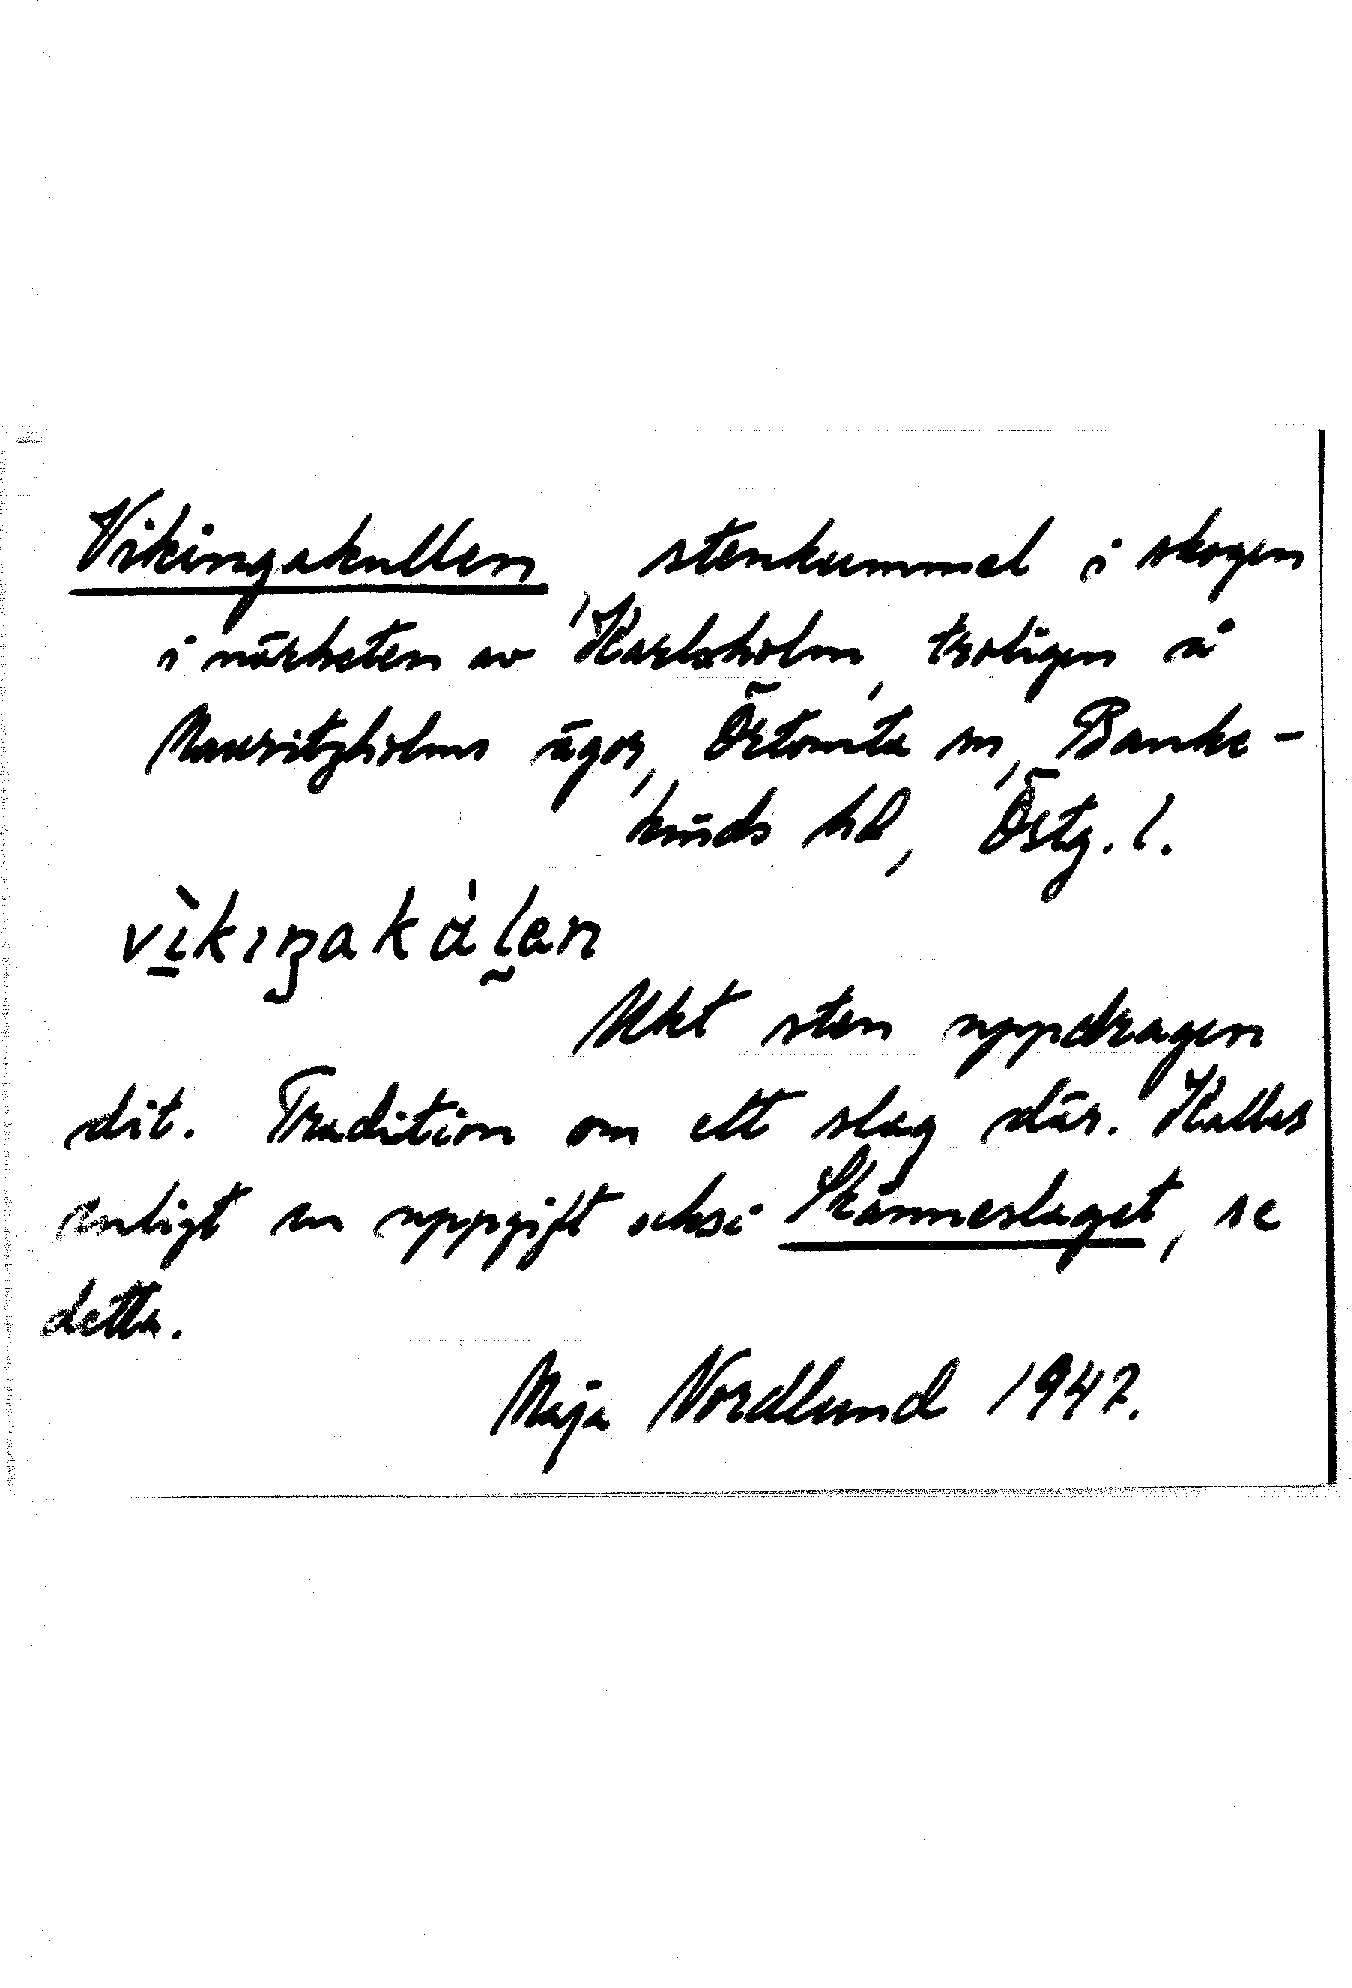 Vikingakullen, stenkummel i skogen
i närheten av Karlsholm, troligen å
Mauritzholms ägor, Örtomta sn, Banke-
kinds hd, Östg. l.
vìkıŋakálen
Mkt sten uppdragen
dit. Tradition om ett slag där. Kallas
enligt en uppgift också Skänneslaget, se
detta.
Maja Nordlund 1947.